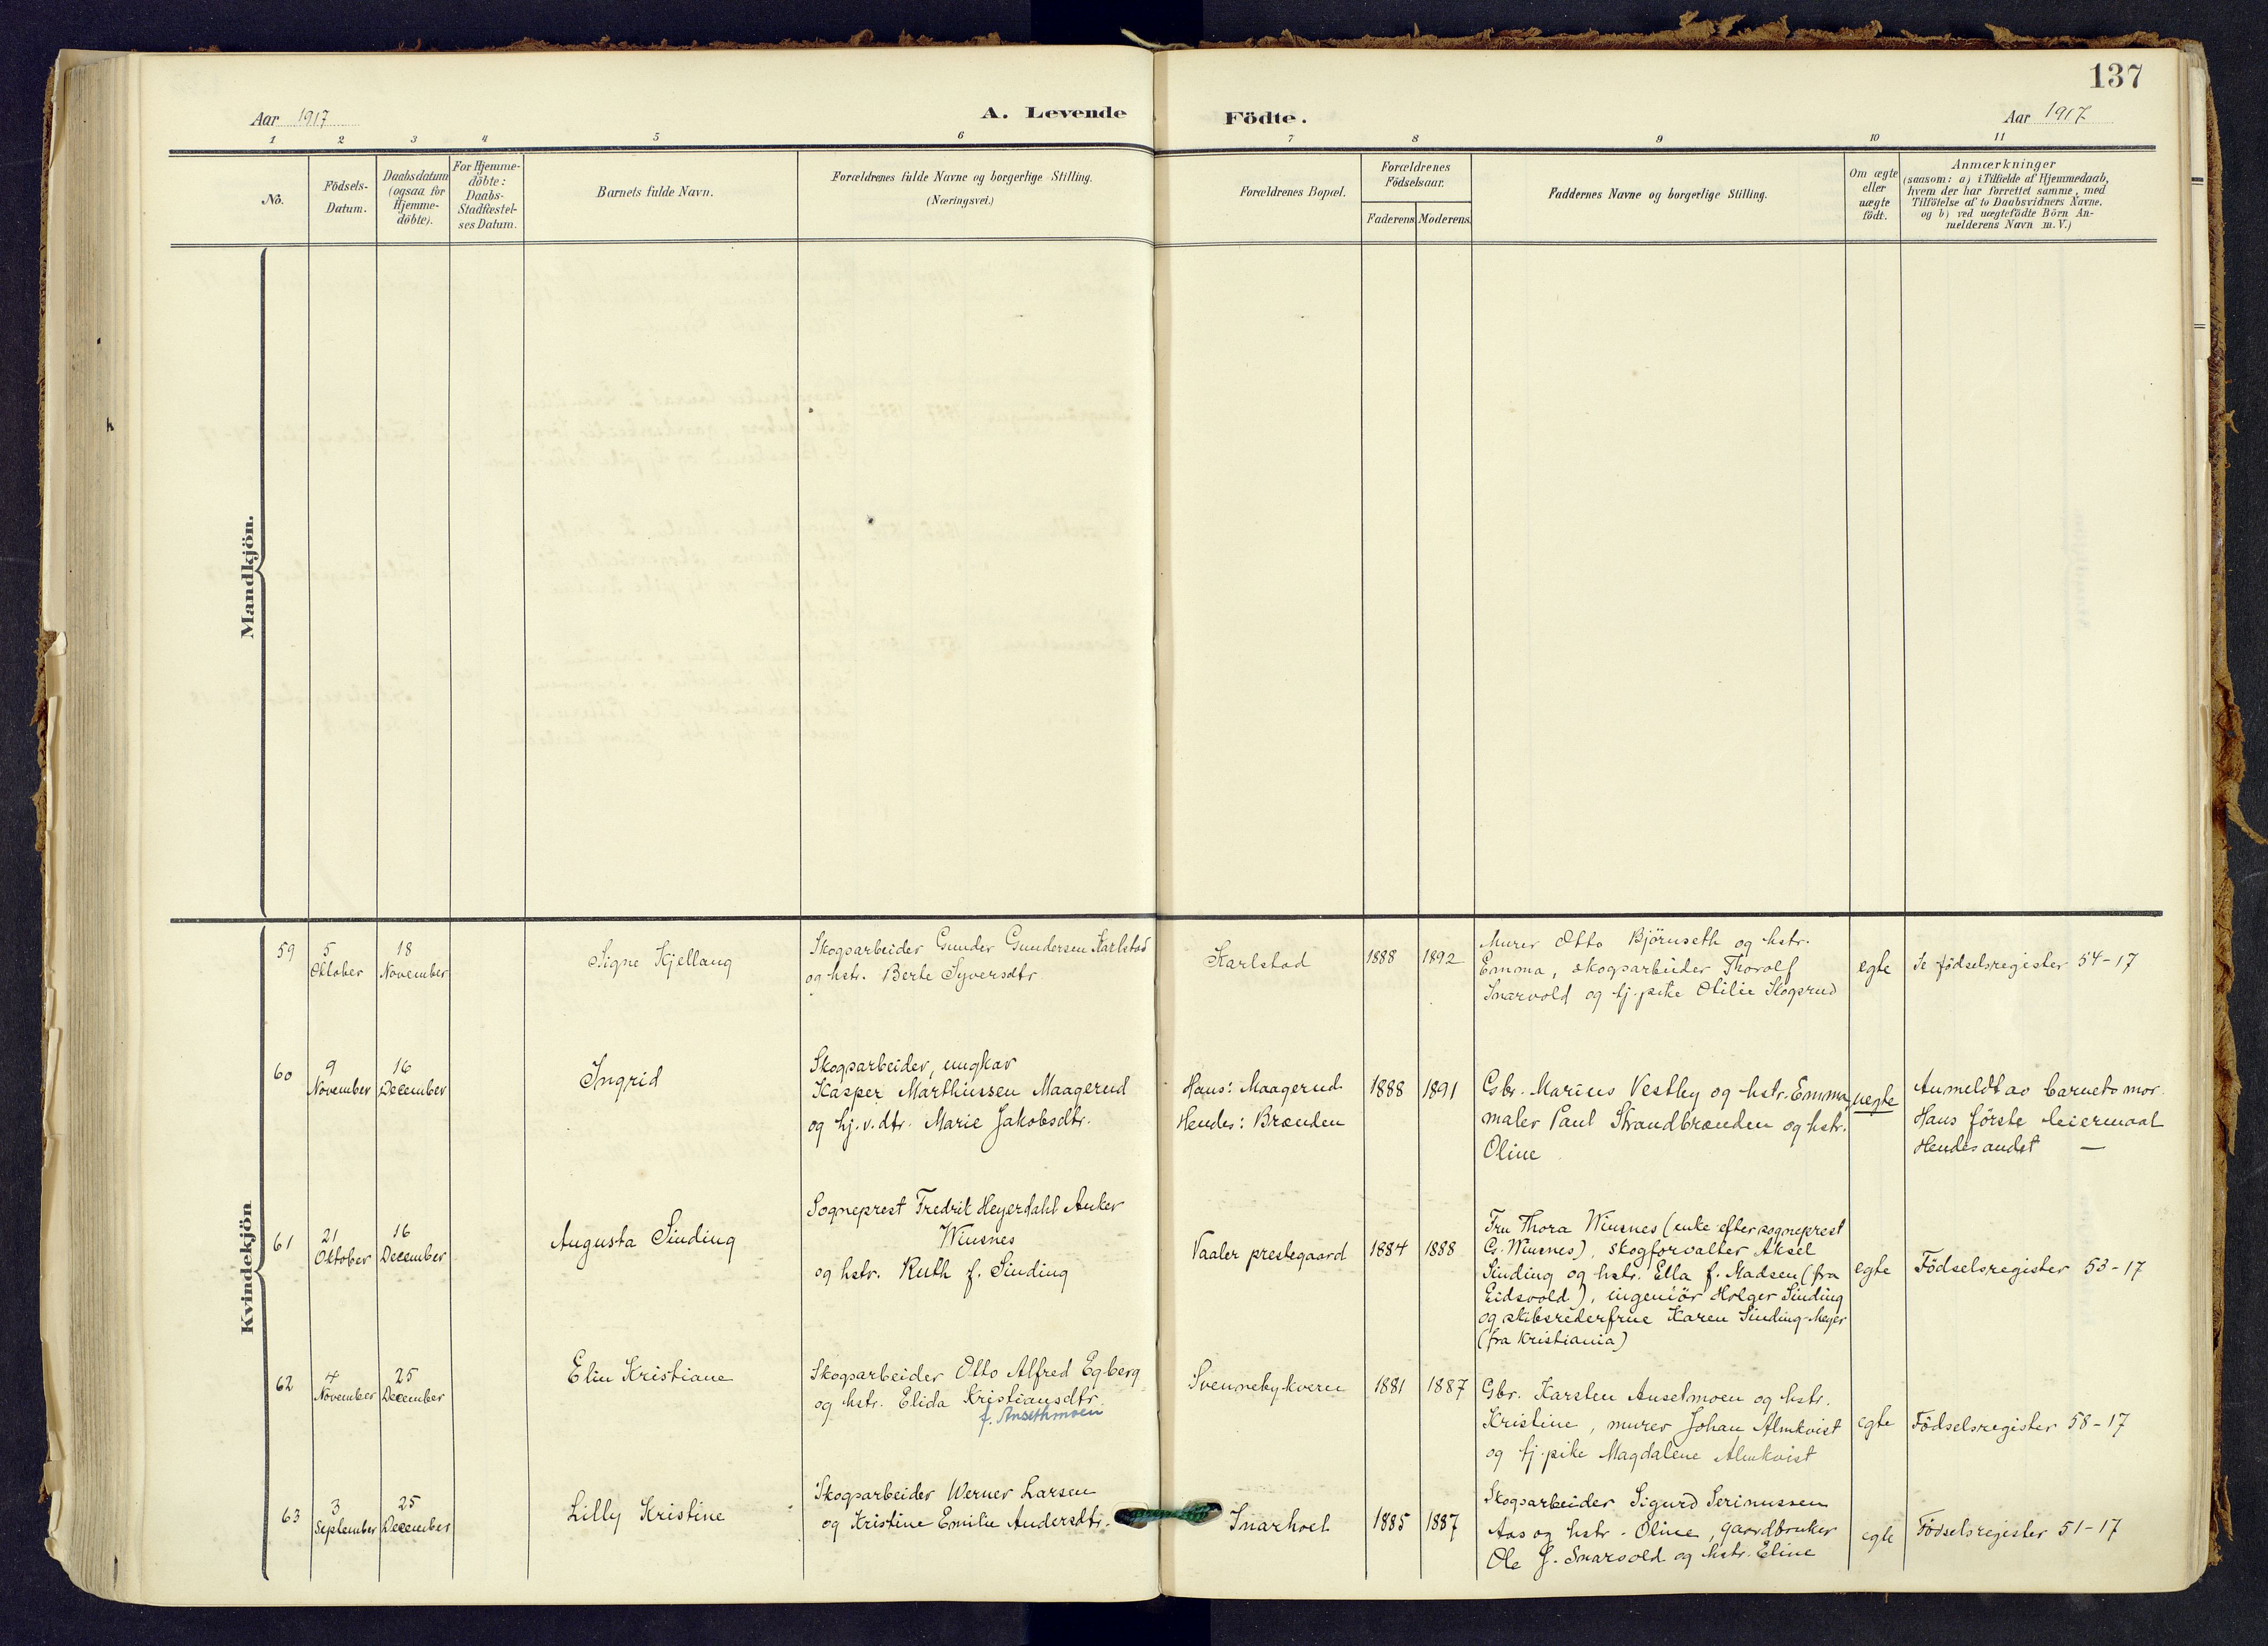 137
Aar 1917
A. Levende Födte.
Aar 1917
1 2 3 4 5 6 7 8 9 10 11
No.
Födsels-
Datum.
Daabsdatum
(ogsaa for
Hjemme-
döbte).
For Hjemme-
döbte:
Daabs-
Stadfæstel-
ses Datum.
Barnets fulde Navn.
Forældrenes fulde Navne og borgerlige Stilling.
(Næringsvei.)
Forældrenes Bopæl.
Forældrenes
Födselsaar.
Faderens
Moderens.
Faddernes Navne og borgerlige Stilling.
Om ægte
eller
uægte
födt.
Anmærkninger
(saasom: a) i Tilfælde af Hjemmedaab,
hvem der har forrettet samme, med
Tilföielse af to Daabsvidners Navne,
og b) ved uægtefödte Börn An-
melderens Navn m.V.)
Mandkjön.
Kvindekjön
59
5
Oktober
18
November
Signe Kjellaug
Skogsarbeider Gunder Gundersen Karlstad
og hstr. Berte Syversdtr
Karlstad
1888
1892
Murer Otto Björnseth og hstr.
Emma, skogsarbeider Thorolf
Snarvold og tj.pike Otilie Skogsrud
egte
Se födselsregister 54-17
60
9
November
16
December
Ingrid
Skogsarbeider, ungkar
Kasper Marthinssen Maagerud
og hj.v.dtr. Marie Jakobsdtr.
Hans: Maagerud
Hendes: Brænden
1888
1891
Gbr. Marius Vestby og hstr. Emma,
maler Paul Strandbrænden og hstr.
Oline
uegte
Anmeldt av barnets mor.
Hans förste leiermaal
Hendes andet —
61
21
Oktober
16
December
Augusta Sinding
Sogneprest Fredrik Heyerdahl Anker
Winsnes
og hstr. Ruth f. Sinding
Vaaler prestegaard
1884
1888
Fru Thora Winsnes (enke efter sogneprest
G. Winsnes), skogforvalter Aksel
Sinding og hstr. Ella f. Madsen (fra
Eidsvold), ingeniör Holger Sinding
og skibsrederfrue Karen Sinding-Meyer
(fra Kristiania)
egte
Födselsregister 53-17
62
4
November
25
December
Elin Kristiane
Skogsarbeider Otto Alfred Egberg
og hstr. Elida Kristiansdtr
f. Ansethmoen
Svennebykvern
1881
1887
Gbr. Karsten Anselmoen og hstr.
Kristine, murer Johan Almkvist
og tj.pike Magdalene Almkvist
egte
Födselsregister 58-17
63
3
September
25
December
Lilly Kristine
Skogsarbeider Werner Larsen
og Kristine Emilie Andersdtr.
Snarhoel
1885
1887
Skogsarbeider Sigurd Serinussen
Aas og hstr. Oline, gaardbruker
Ole J. Snarvold og hstr. Eline
egte
Födselsregister 51-17